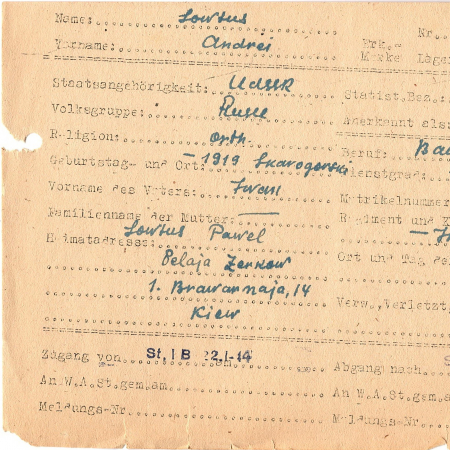 Name: Lowtus Nr.
Vorname: Andrei Erk.-
Marke Lage
Staatsangehörigkeit: UdSSR Statist.Bez.:
Volksgruppe: Russe Anerkannt als:
Religion: orth. Beruf: Ba
Geburtstag- und Ort: - 1919 Skarogorski Dienstgrad:
Vorname des Vaters: Iwan Matrikelnummer
Familienname der Mutter: — Regiment und K
Heimatadresse: Lowtus Pawel
Belaja Zerkow Ort und Tag de
1. Brawarnaja, 14
Kiew Verw., Verletzt
Zugang von St, I B an 22.1-44 Abgang nach S
An W.A.St.gem.am An W.A.St.gem
Meldungs-Nr Meldungs-Nr.